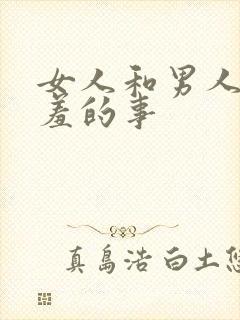 女人和男人
羞的事
真島浩 白土悠